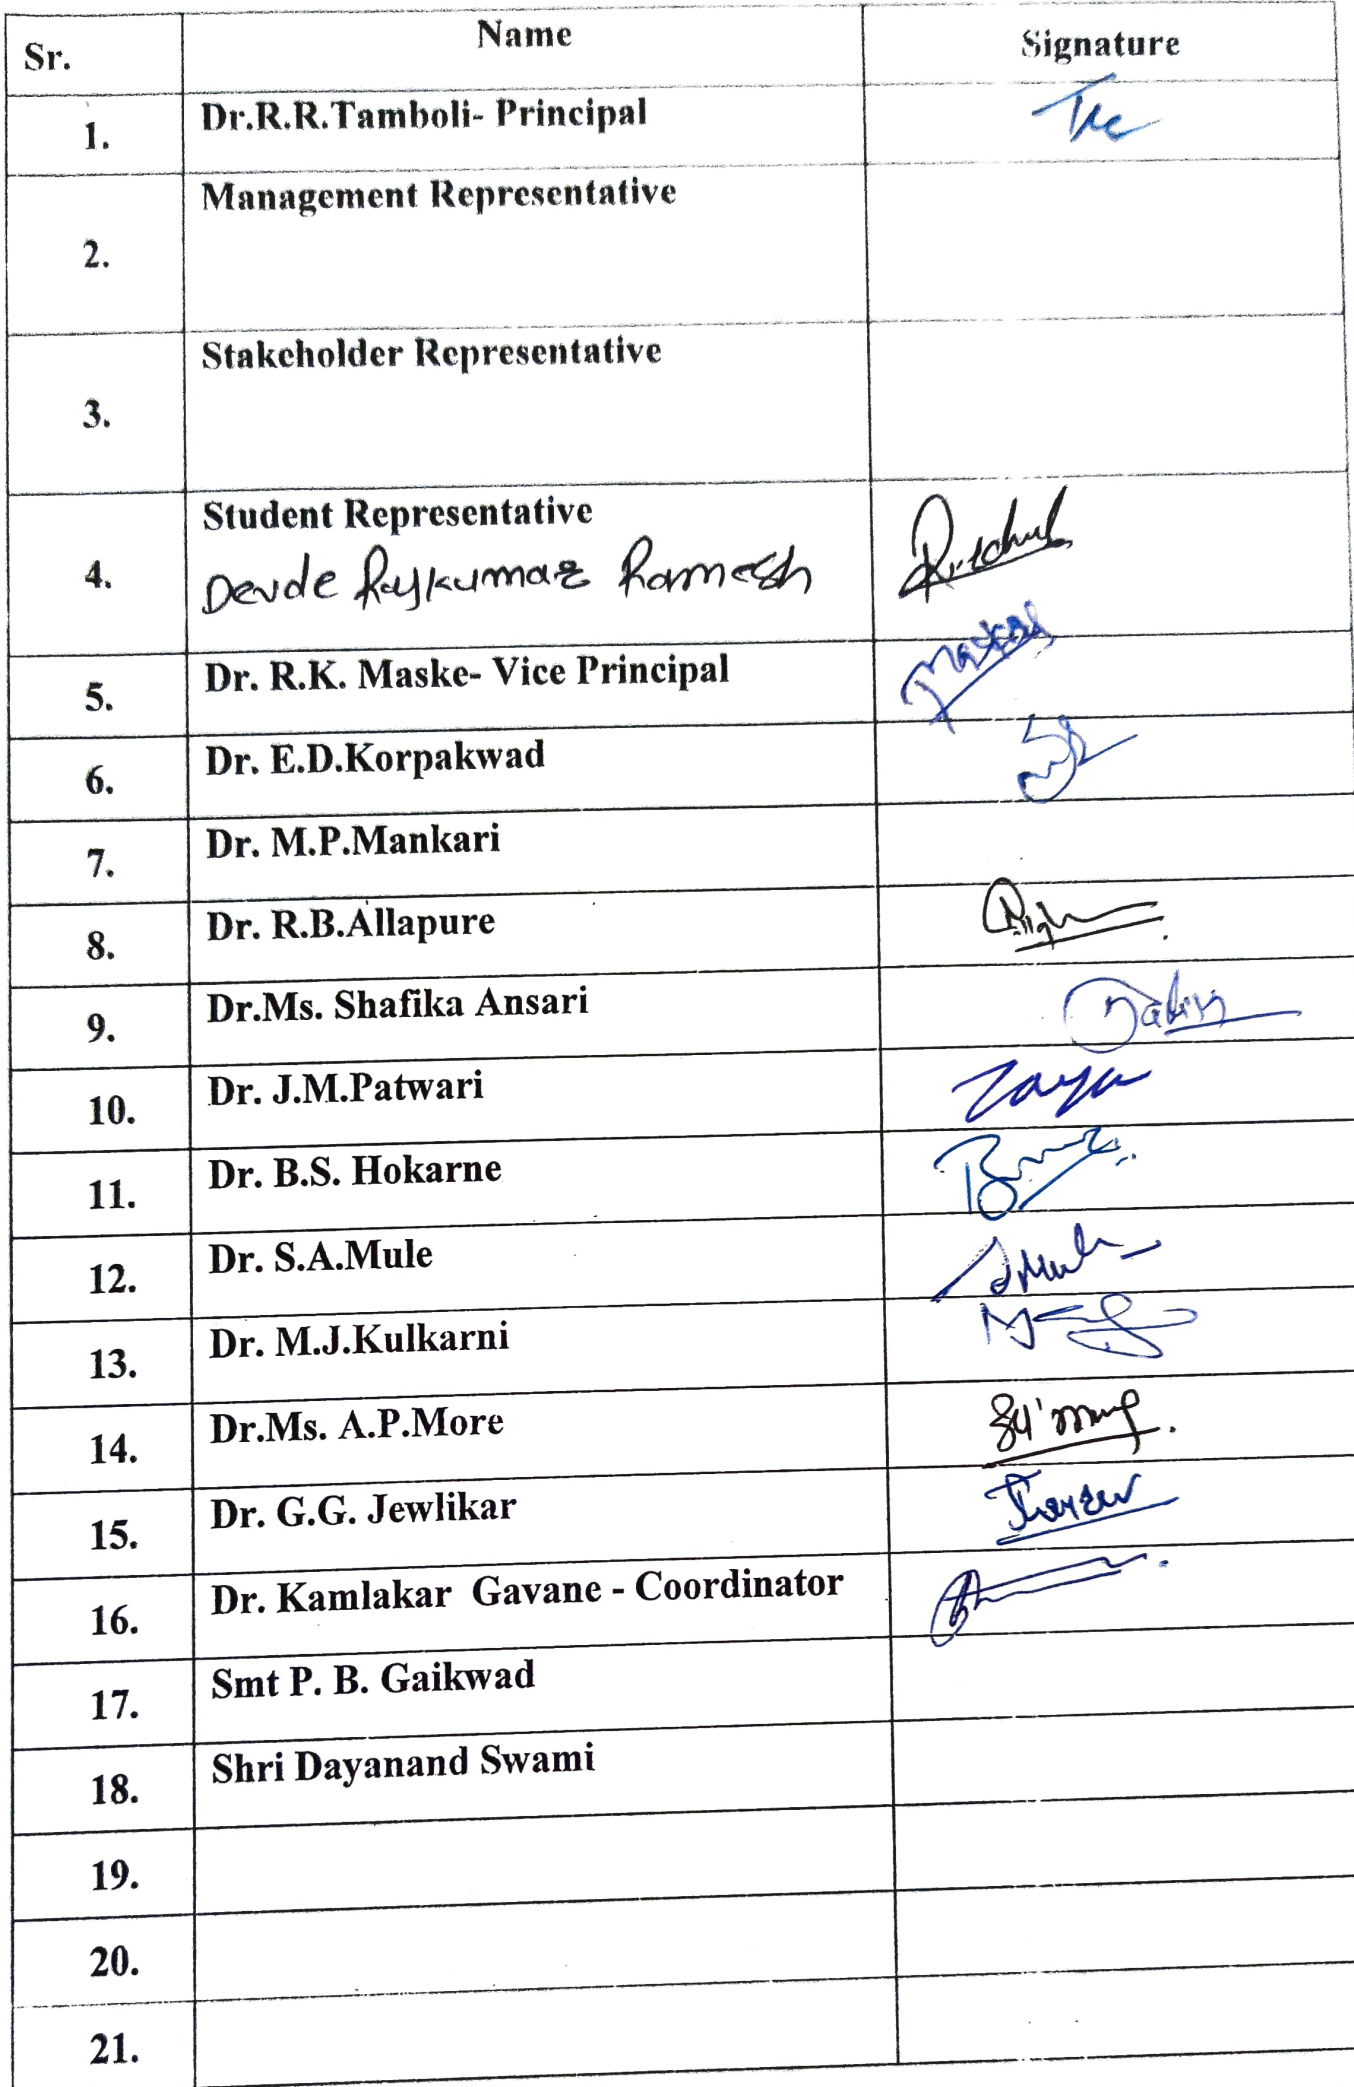 Sr. Name Signature
1. Dr.R.R.Tamboli- Principal
2. Management Representative
3. Stakeholder Representative
4. Student Representative
Devde Rajkumar Ramesh
5. Dr. R.K. Maske- Vice Principal
6. Dr. E.D.Korpakwad
7. Dr. M.P.Mankari
8. Dr. R.B.Allapure
9. Dr.Ms. Shafika Ansari
10. Dr. J.M.Patwari
11. Dr. B.S. Hokarne
12. Dr. S.A.Mule
13. Dr. M.J.Kulkarni
14. Dr.Ms. A.P.More
15. Dr. G.G. Jewlikar
16. Dr. Kamlakar Gavane - Coordinator
17. Smt P. B. Gaikwad
18. Shri Dayanand Swami
19.
20.
21.